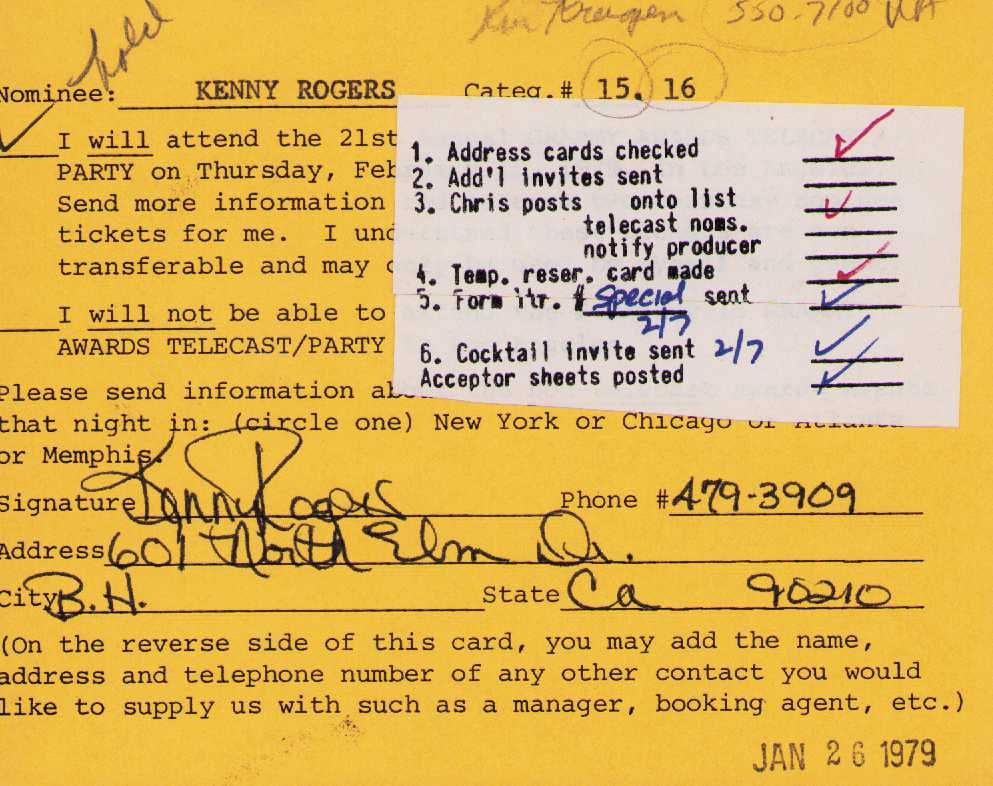 Ken Kragen 550-7100
hold
Nominee: KENNY ROGERS Categ.# 15. 16
I will attend the 21st
PARTY on Thursday, Feb
Send more information
tickets for me. I und
transferable and may
I will not be able to
AWARDS TELECAST/PARTY
1. Address cards checked
2. Add'l invites sent
3. Chris posts onto list
telecast noms.
notify producer
4. Temp. reser. card made
5. Form ltr. # special sent
2/7
6. Cocktail invite sent 2/7
Acceptor sheets posted
Please send information abo
that night in: (circle one) New York or Chicago or Atlanta
or Memphis.
Signature Kenny Rogers Phone #479-3909
Address 601 North Elm Dr.
City B.H. State Ca 90210
(On the reverse side of this card, you may add the name,
address and telephone number of any other contact you would
like to supply us with such as a manager, booking agent, etc.)
JAN 26 1979